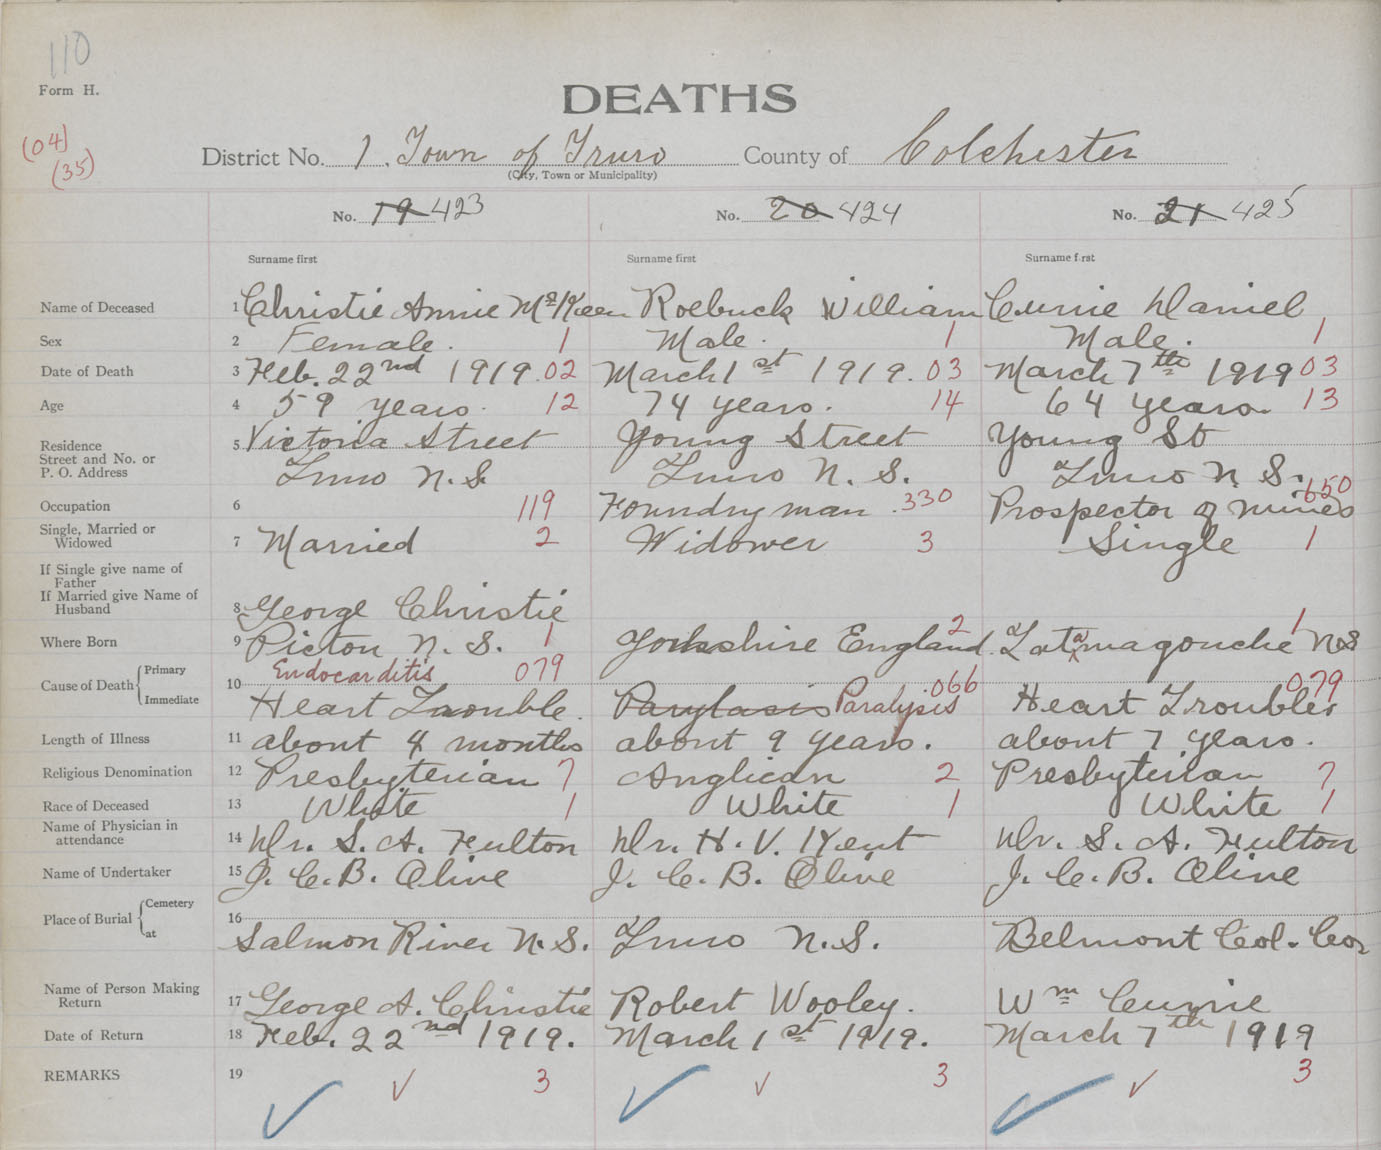 110
Form H.
DEATHS
(04)
(35)
District No. 1. Town of Truro County of Colchester
(City, Town or Municipality)
No. 19 423 No. 20 424 No. 21 425
Surname first Surname first Surname first
Name of Deceased 1 Christie Annie McKeen Roebuck William Currie Daniel
Sex 2 Female. 1 Male. 1 Male. 1
Date of Death 3 Feb. 22nd 1919. 02 March 1st 1919. 03 March 7th 1919 03
Age 4 59 years. 12 74 years. 14 64 years. 13
Residence
Street and No. or 5 Victoria Street Young Street Young St
P. O. Address Truro N.S. Truro N. S. Truro N. S.
Occupation 6 119 Foundryman. 330 Prospector of mines 650
Single, Married or
Widowed 7 Married 2 Widower 3 Single 1
If Single give name of
Father
If Married give Name of
Husband 8 George Christie
Where Born 9 Picton N. S. 1 Yorkshire England. 2 Latamagouche N S 1
Cause of Death { Primary 10 Endocarditis 079 066 079
Immediate Heart Trouble. Parylasis Paralysis Heart Troubles
Length of Illness 11 about 4 months about 9 years. about 7 years.
Religious Denomination 12 Presbyterian 7 Anglican 2 Presbyterian 7
Race of Deceased 13 White 1 White 1 White 1
Name of Physician in
attendance 14 Dr. S. A. Fulton Dr. H. V. Kent Dr. S. A. Fulton
Name of Undertaker 15 J. C. B. Olive J. C. B. Olive J. C. B. Olive
Place of Burial { Cemetery 16
at Salmon River N. S. Truro N. S. Belmont Col. Co.
Name of Person Making
Return 17 George A. Christie Robert Wooley. Wm Currie
Date of Return 18 Feb. 22nd 1919. March 1st 1919. March 7th 1919
REMARKS 19 ✓ ✓ 3 ✓ ✓ 3 ✓ ✓ 3